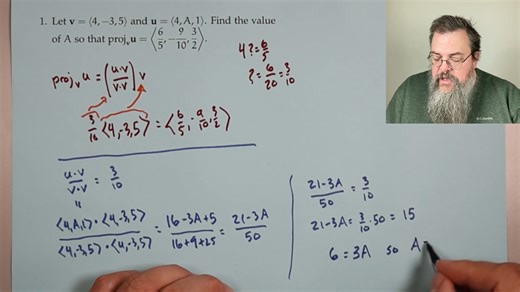 1. Let v = ⟨4, −3, 5⟩ and u = ⟨4, A, 1⟩. Find the value
of A so that projᵥu = ⟨6/5, −9/10, 3/2⟩.
4 ? = 6/5
? = 6/20 = 3/10
projᵥ u = (u·v / v·v) v
3/10 ⟨4, -3, 5⟩ = ⟨6/5, -9/10, 3/2⟩
u·v / v·v = 3/10
"
⟨4, A, 1⟩ · ⟨4, -3, 5⟩ / ⟨4, -3, 5⟩ · ⟨4, -3, 5⟩ = 16 - 3A + 5 / 16 + 9 + 25 = 21 - 3A / 50
21 - 3A / 50 = 3/10
21 - 3A = 3/10 · 50 = 15
6 = 3A so A